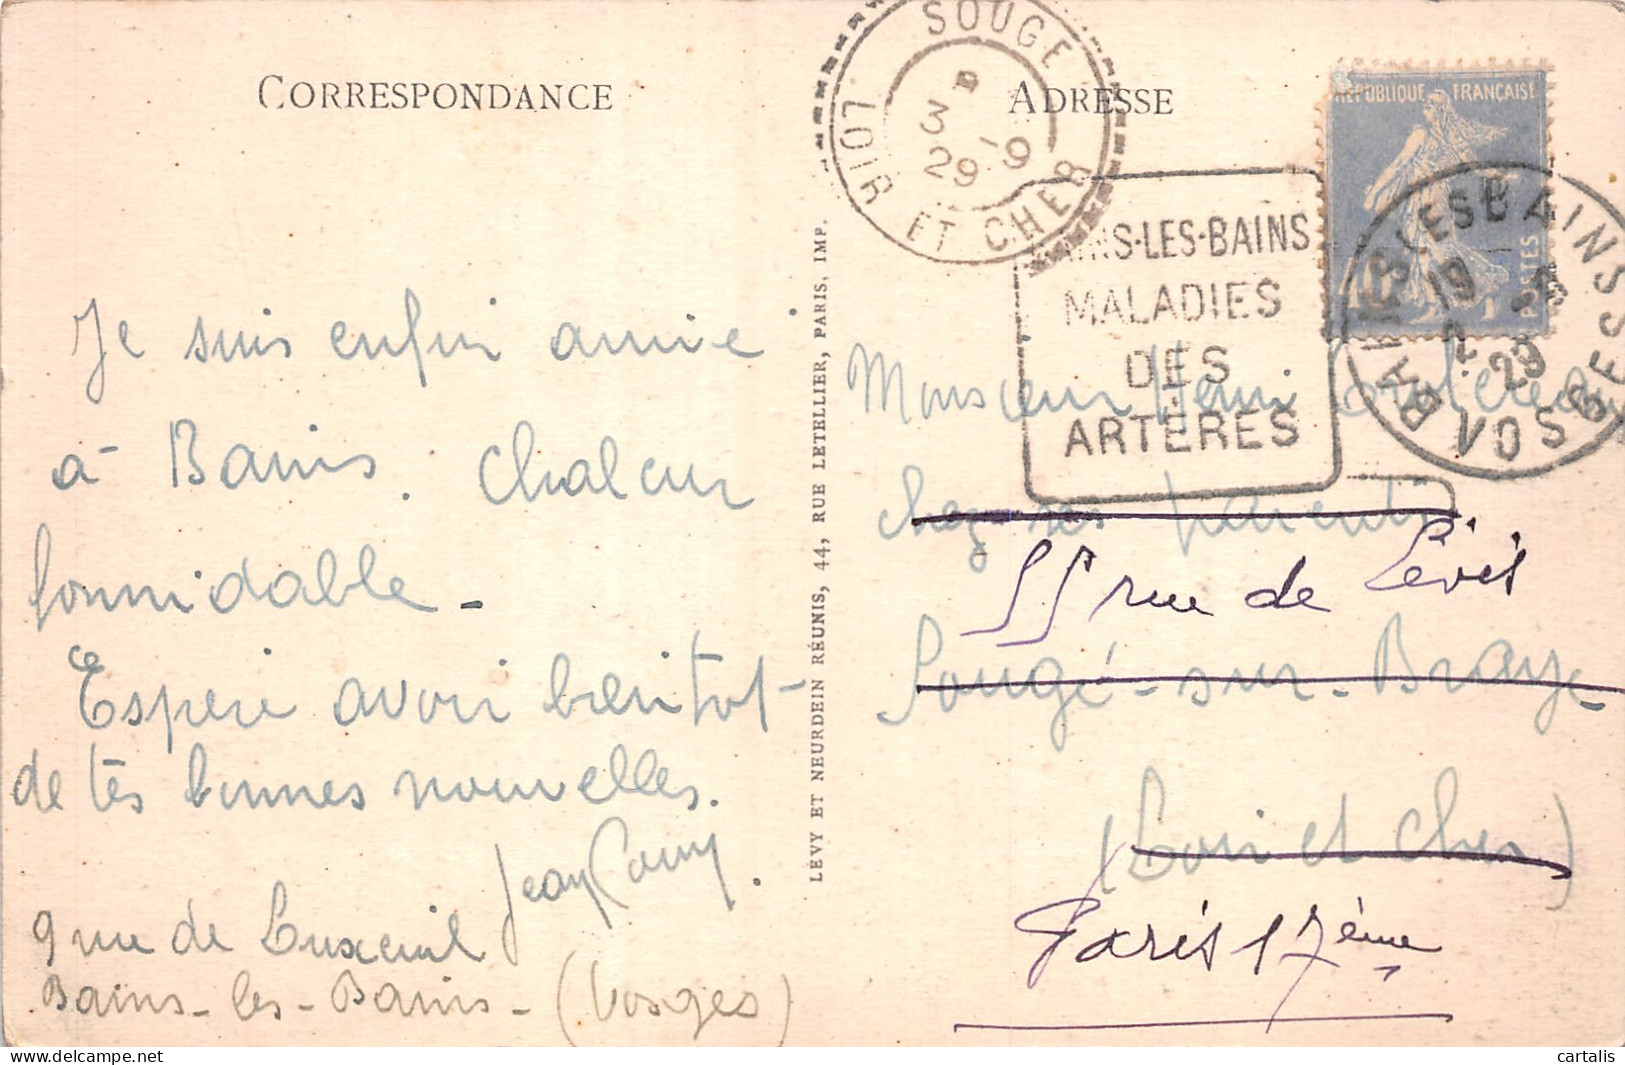 CORRESPONDANCE
Je suis enfin arrivé
à Bains. Chaleur
formidable -
Espère avoir bientot
de tes bonnes nouvelles.
Jean
9 rue de Luxeuil
Bains-les-Bains - (Vosges)
LÉVY ET NEURDEIN RÉUNIS, 44, RUE LETELLIER, PARIS. IMP.
SOUGE
3 -9
29
LOIR ET CHER
ADRESSE
RÉPUBLIQUE FRANÇAISE
POSTES
BAINS-LES-BAINS
MALADIES
DES
ARTERES
BAINS LES BAINS
19
2 - 9
29
VOSGES
Monsieur Henri
chez ses parents
55 rue de Lévis
Sougé-sur-Braye
(Loir et Cher)
Paris 17ème
cartalis